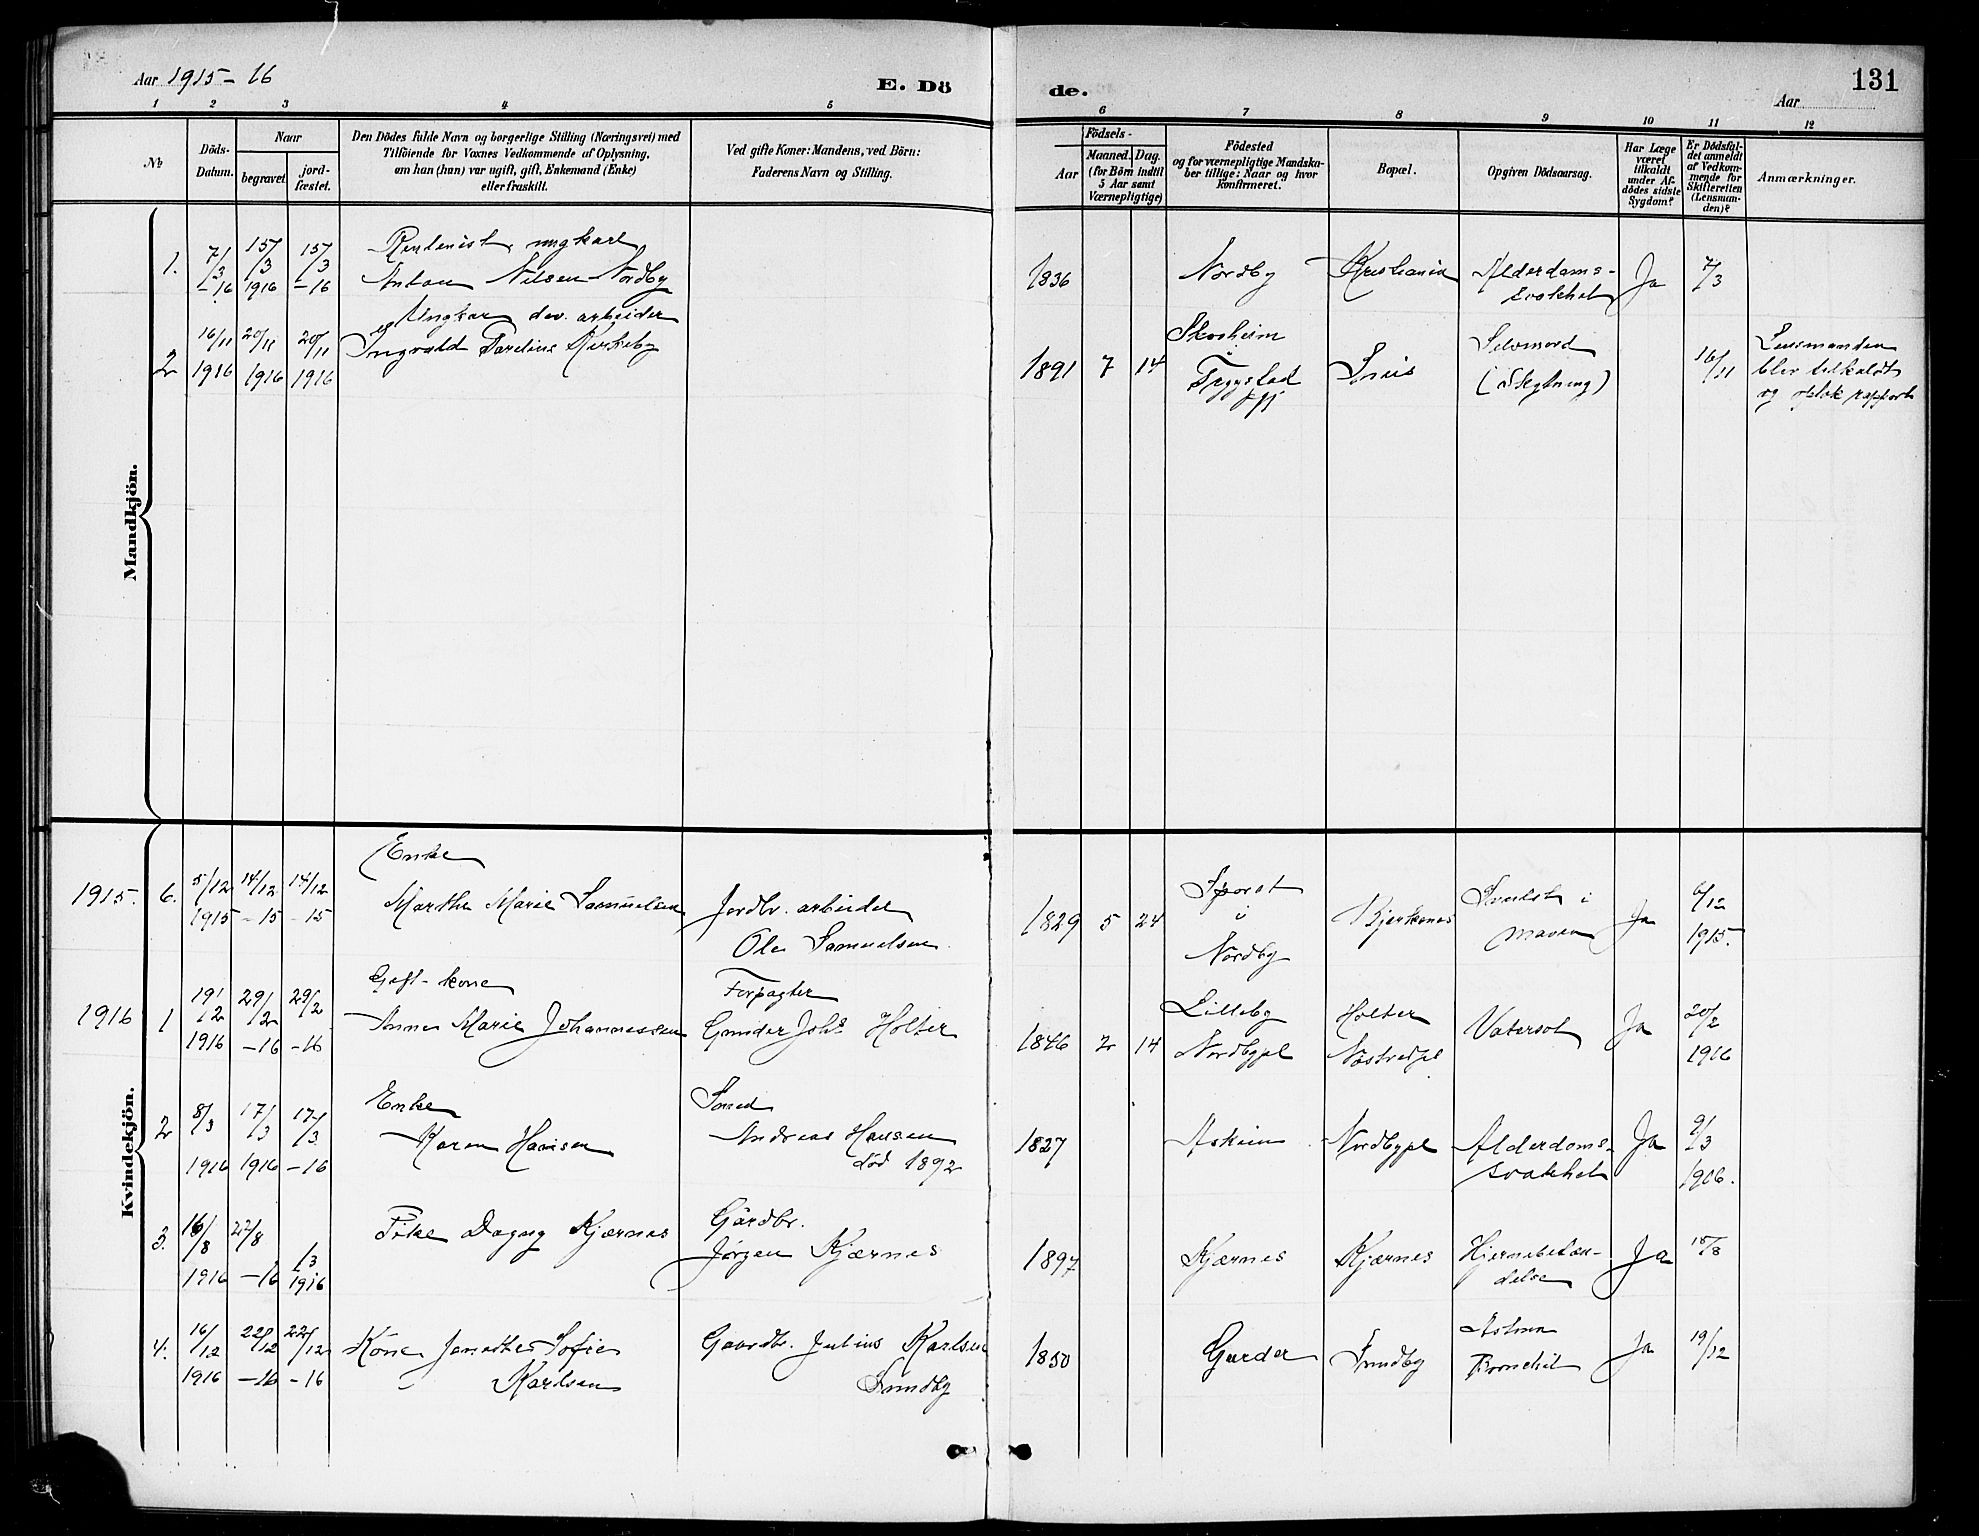 Aar 1915-16
E. Dö
de.
131
Aar
1 2 3 4 5 6 7 8 9 10 11 12
No
Döds-Datum.
Naar
begravet
jord-fæstet.
Den Dödes fulde Navn og borgerlige Stilling (Næringsvei) med
Tilföiende for Voxnes Vedkommende af Oplysning,
om han (hun) var ugift, gift, Enkemand (Enke)
eller fraskilt.
Ved gifte Koner: Mandens, ved Börn:
Faderens Navn og Stilling.
Födsels-
Aar
Maaned. Dag.
(for Börn indtil
5 Aar samt
Værnepligtige)
Födested
og for værnepligtige Mandska-
ber tillige: Naar og hvor
konfirmeret.
Bopæl.
Opgiven Dödsaarsag.
Har Læge
været
tilkaldt
under Af-
dödes sidste
Sygdom?
Er Dödsfal-
det anmeldt
af Vedkom-
mende for
Skifteretten
(Lensman-
den)?
Anmærkninger.
Mandkjön.
1. 7/3 -16 15/3 1916 15/3 -16
Rentenist, ungkarl
Anton Nilsen Nordby
1836 Nordby Kristiania Alderdoms-
svakhet Ja 7/3
2 16/11 1916 20/11 1916 20/11 1916
Ungkar dav. arbeider
Ingvald Kirkeby
1891 7 14 Skosheim
i
Selvmord
16/11
Lensmanden
blev tilkaldt
og optok rapport
Kvindekjön.
1915. 6. 5/12 1915 14/12 -15 14/12 -15
Enke
Marthe Marie Samuelsen
Jordbr. arbeider
Ole Samuelsen
1829 5 24
i
Nordby
Bjerkenes
i
maven
Ja 6/12 1915.
1916 1 19/2 1916 29/2 -16 29/2 -16
Gift-kone
Anne Marie Johannessen
Forpagter
Gunder Johs Holter
1846 2 14
Lilleby
Nordbypl
Holter
Vatersot Ja 20/2 1916
2 8/3 1916 17/3 1916 17/3 -16
Enke
Karen Hansen
Smed
Andreas Hansen
død 1892
1827 Askim Nordbypl Alderdoms-
svakhet Ja 9/3 1916.
3. 16/8 1916 27/8 -16 1/3 1916
Pike Dagny Kjærnes
Gårdbr.
Jørgen Kjærnes
1897 Kjærnes Kjærnes Hjernebetæn-
delse Ja 18/8
4. 16/12 1916 22/12 -16 22/12 -16
Kone Sofie
Karlsen
Gaardbr. Julius Karlsen
Sundby
1850 Garder Sundby Astma
Ja 19/12